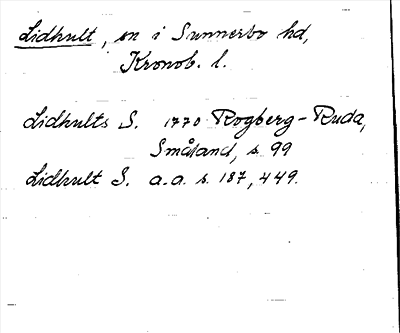 Lidhult, sn i Sunnerbo hd,
Kronob. l.
Lidhults S. 1770 Rogberg-Ruda,
Småland, s. 99
Lidhult S. a.a. s. 187, 449.